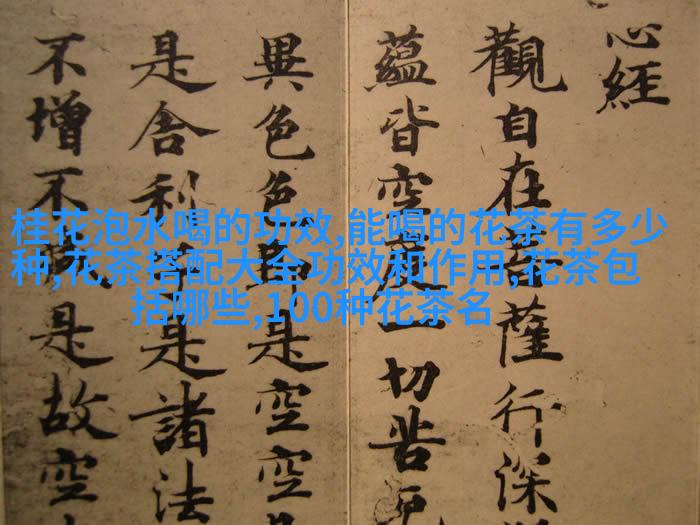 心經
觀自在菩薩行深
蘊皆空度一切苦厄
異色色即是空空
是舍利子是諸法
不增不減是故空
桂花泡水喝的功效,能喝的花茶有多少
种,花茶搭配大全功效和作用,花茶包
括哪些,100种花茶名